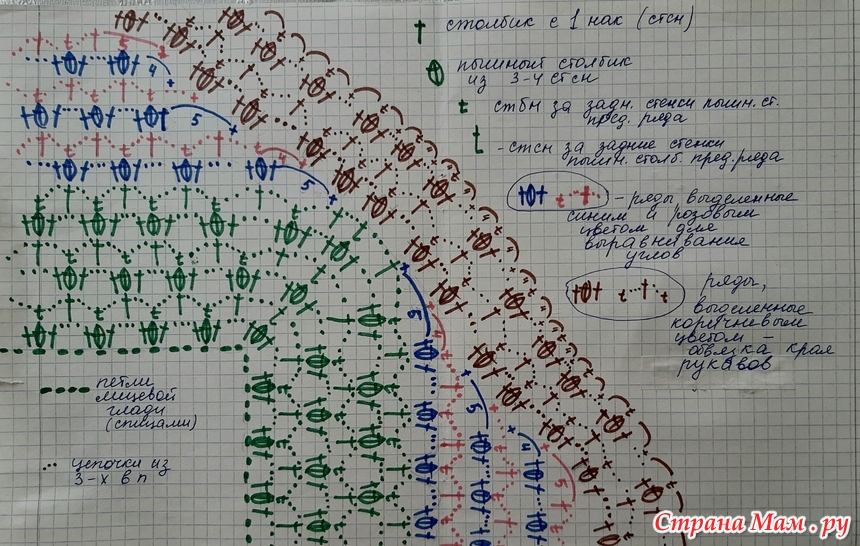 столбик с 1 нак (стсн)
пышный столбик
из 3-4 стсн
t стбн за задн. стенки пышн. ст.
пред. ряда
- стсн за задние стенки
пышн. столб. пред. ряда
- ряды выделенные
синим и розовым
цветом для
выравнивание
углов
ряды,
выделенные
коричневым
цветом -
обвязка края
рукавов
петли
лицевой
глади
(спицами)
цепочки из
3-х в п
4
5
4
5
5
4
5
4
5
Страна Мам.ру